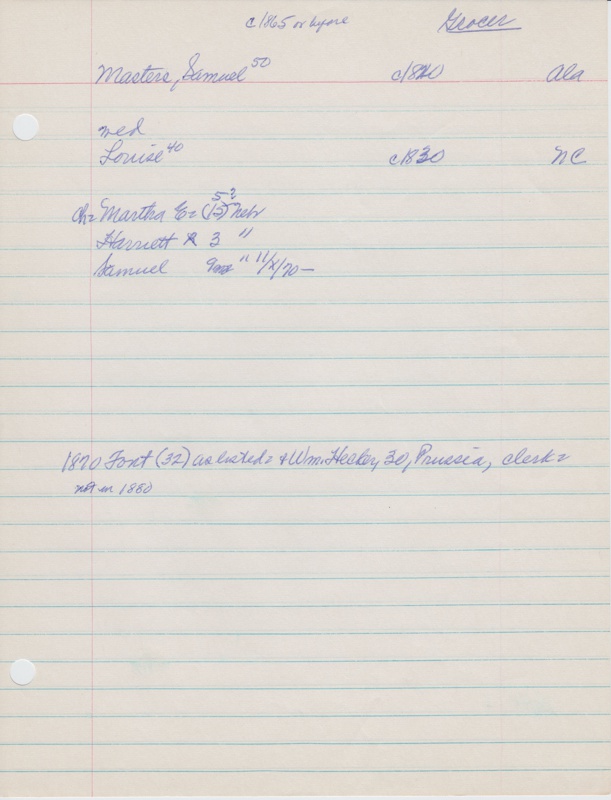 c1865 or before Grocer
Masters, Samuel 50 c1820 Ala
wed
Louise 40 c1830 NC
ch= Martha E= (15) 5? Nebr
Harriett R 3 "
Samuel 9ms " 11/x/70 —
1870 Font (32) as listed= & Wm. Hecker, 30, Prussia, clerk=
not in 1860